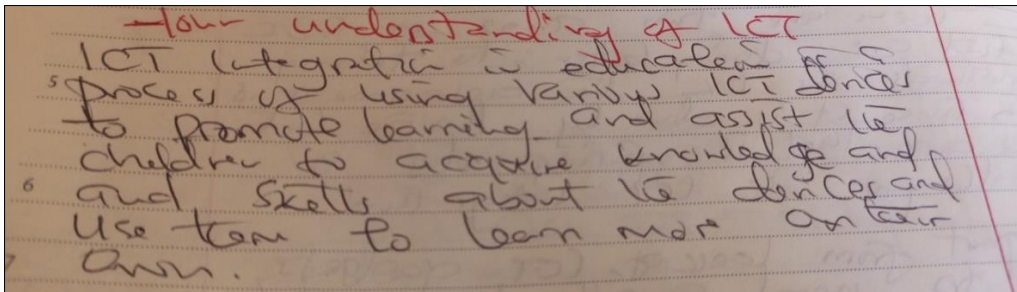 Your understanding of ICT
ICT integration in education is
5 process of using various ICT devices
to promote learning and assist the
children to acquire knowledge and
6 and skills about the devices and
use them to learn more on their
7 own.